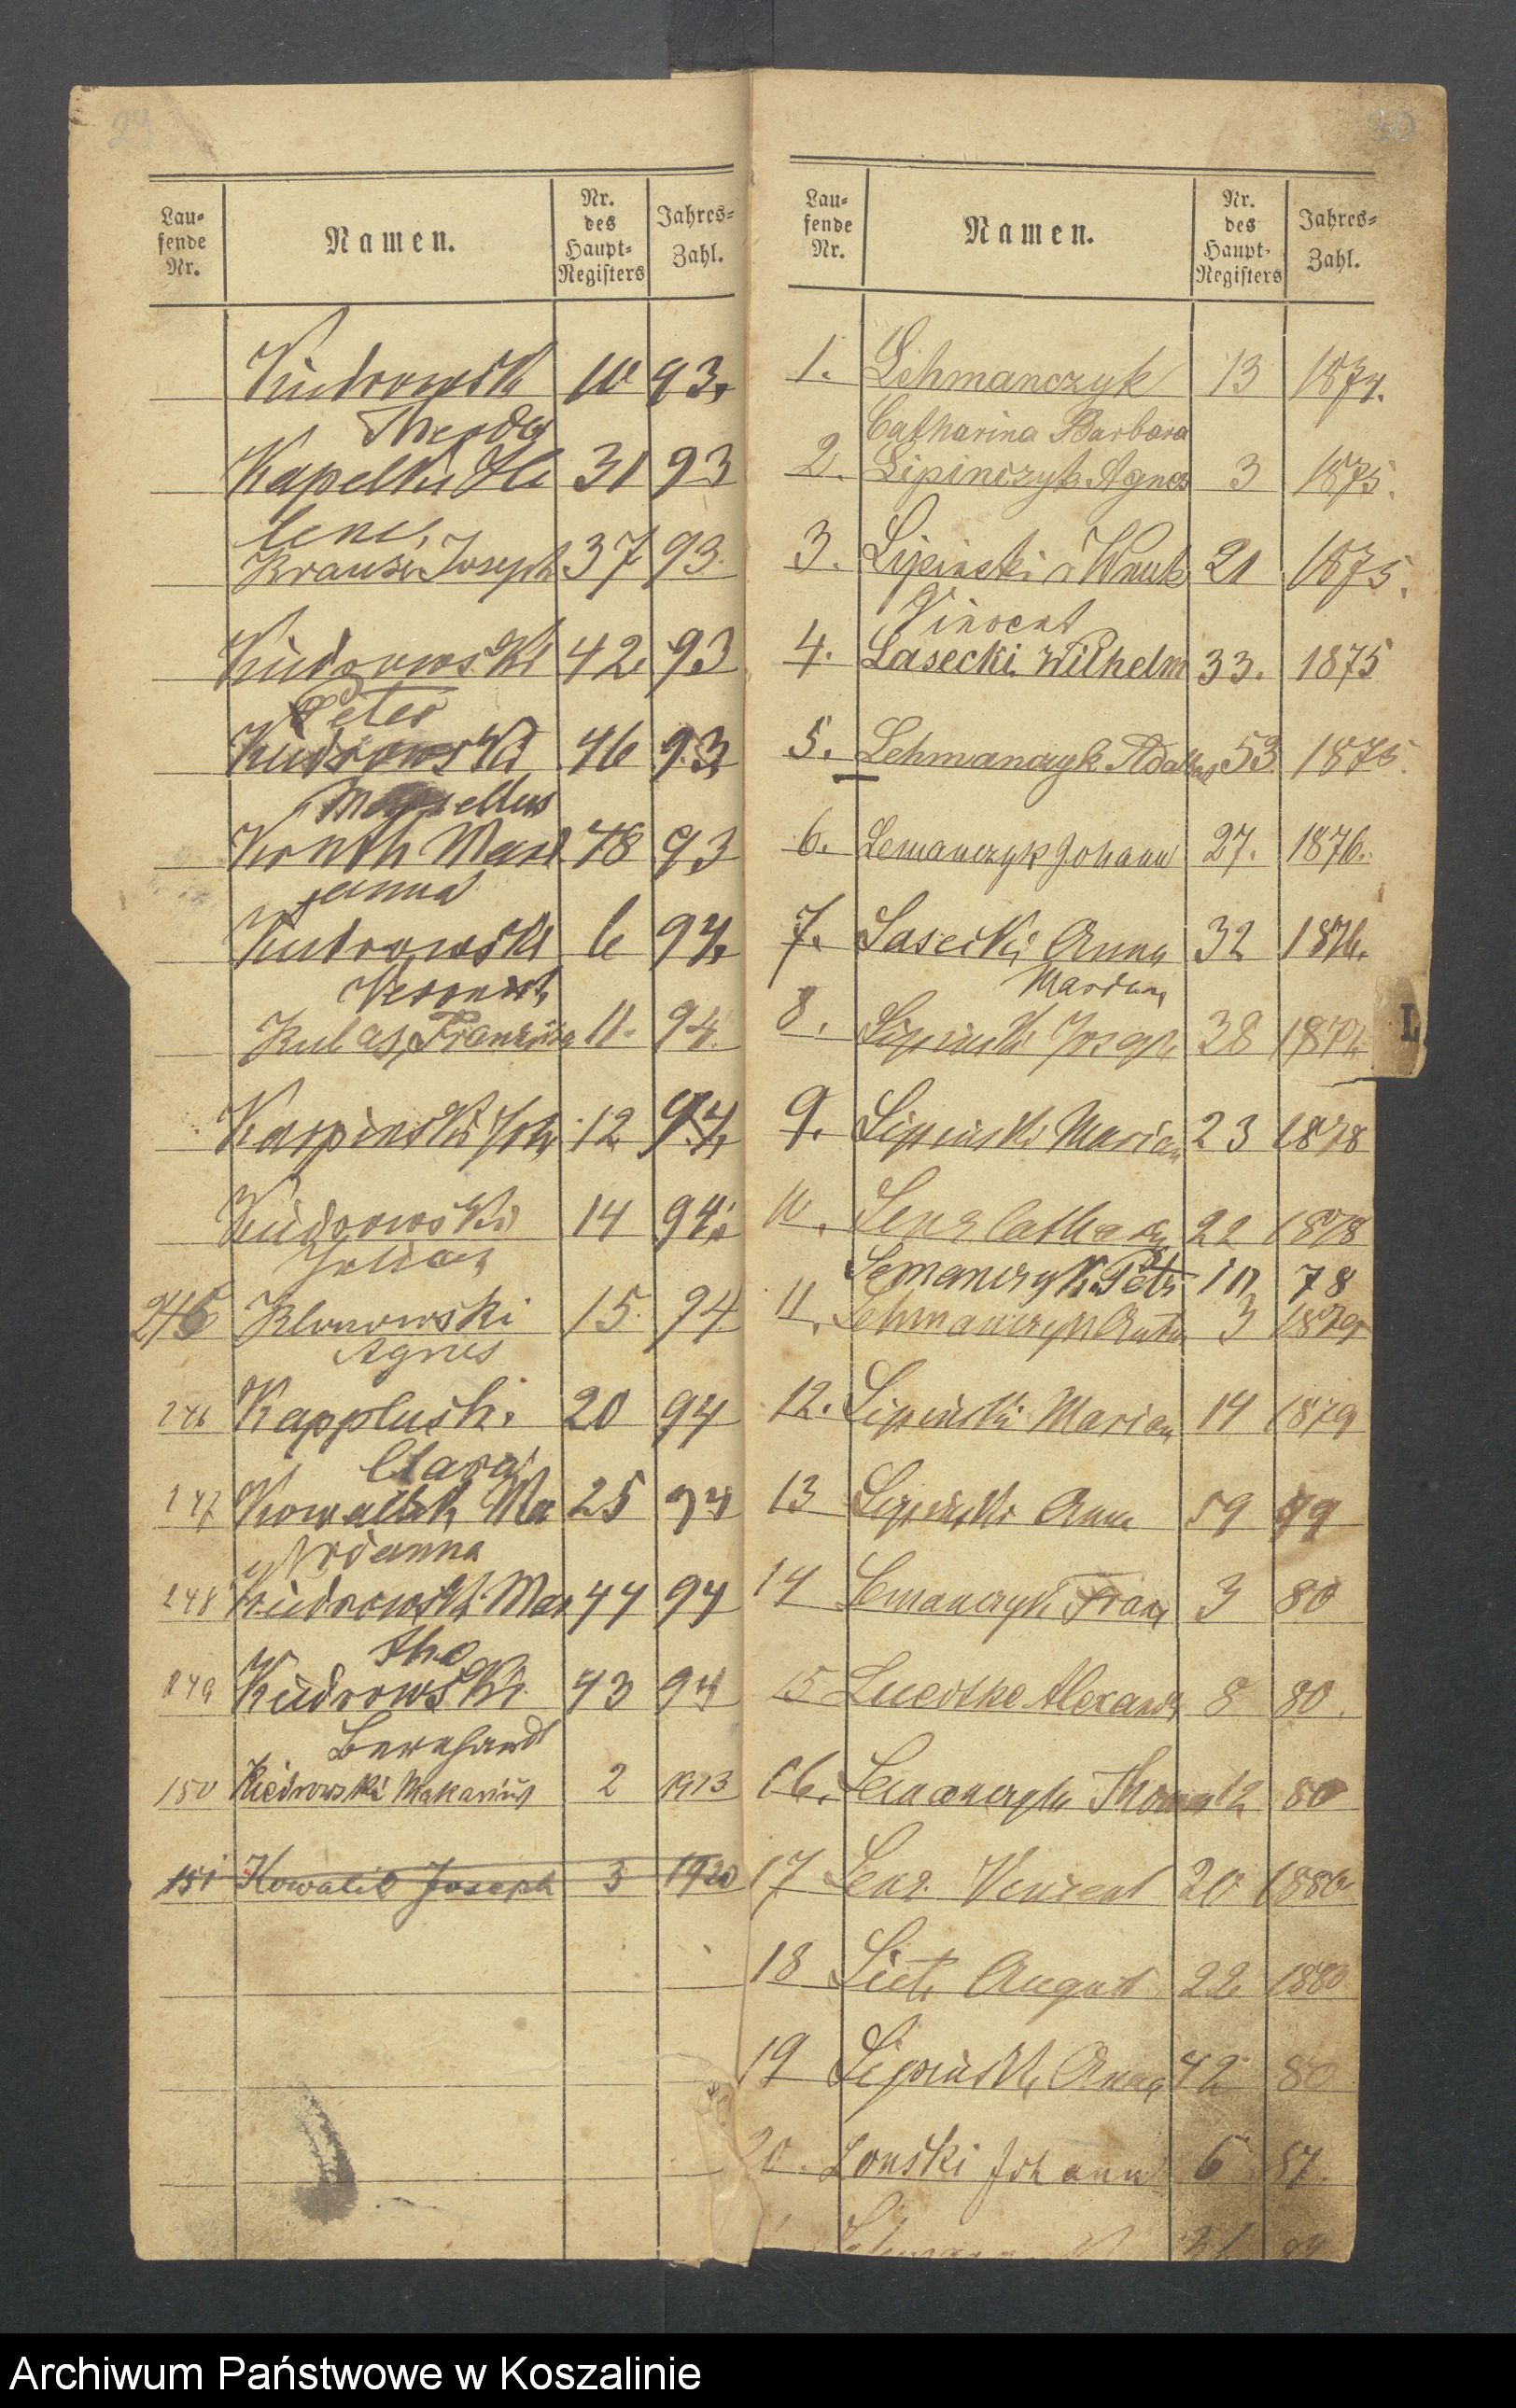 29
Lau-
fende
Nr.
Namen.
Nr.
des
Haupt-
Registers
Jahres-
Zahl.
Kudrowski 10 93.
Theodor
Kapelku He 31 93
lene,
Krause Joseph 37 93.
Kudrowski 42. 93
Peter
Kudrowski 46 93
Marcellus
Konth Mari 48 93
anna
Kudrowski 6 94.
Veronica
Kulas, Franziska 11. 94.
Karpinski Joh 12 94.
Kudrowski 14 94.
Julian
245 Klonowski 15. 94.
Agnes
246 Kapplusch. 20 94
Clara
147 Kowallek Ma 25 94
rianna
248 Kudrowski Mar 44 94
tha
249 Kudrowski. 43 94
Bernhard
150 Kiedrowski Makarius 2 1913
151 Kowalik Joseph 3 1920
30
Lau-
fende
Nr.
Namen.
Nr.
des
Haupt-
Registers
Jahres-
Zahl.
1. Lehmanczyk 13 1874.
Catharina Barbara
2. Lipinczyk Agnes 3 1875.
3. Lipinski v Wnuk 21 1875.
Vincent
4. Lasecki Wilhelm 33. 1875
5. Lehmanczyk 53. 1875.
6. Lemanczyk Johann 27. 1876.
7. Lasecki Anna 32 1876.
Marian
8. Lipinski Joseph 38 1877
L
9. Lipinski Marian 23 1878
10. Lenz Catha 22 1878
Lemanczyk Petr 10 78
11. Lehmanczyk Anton 3 1879
12. Lipinski Marian 14 1879
13 Lipinski Anna 59 79
14 Lemanczyk Franz 3 80
15 Luedtke Alexandr 8 80.
16. Lemanczyk Thomas 12 80
17 Lenz. Vincent 20 1880
18 Lietz August 22 1880
19 Lipinski Anna 42 80
20. Lonski Johann 6 81.
Archiwum Państwowe w Koszalinie